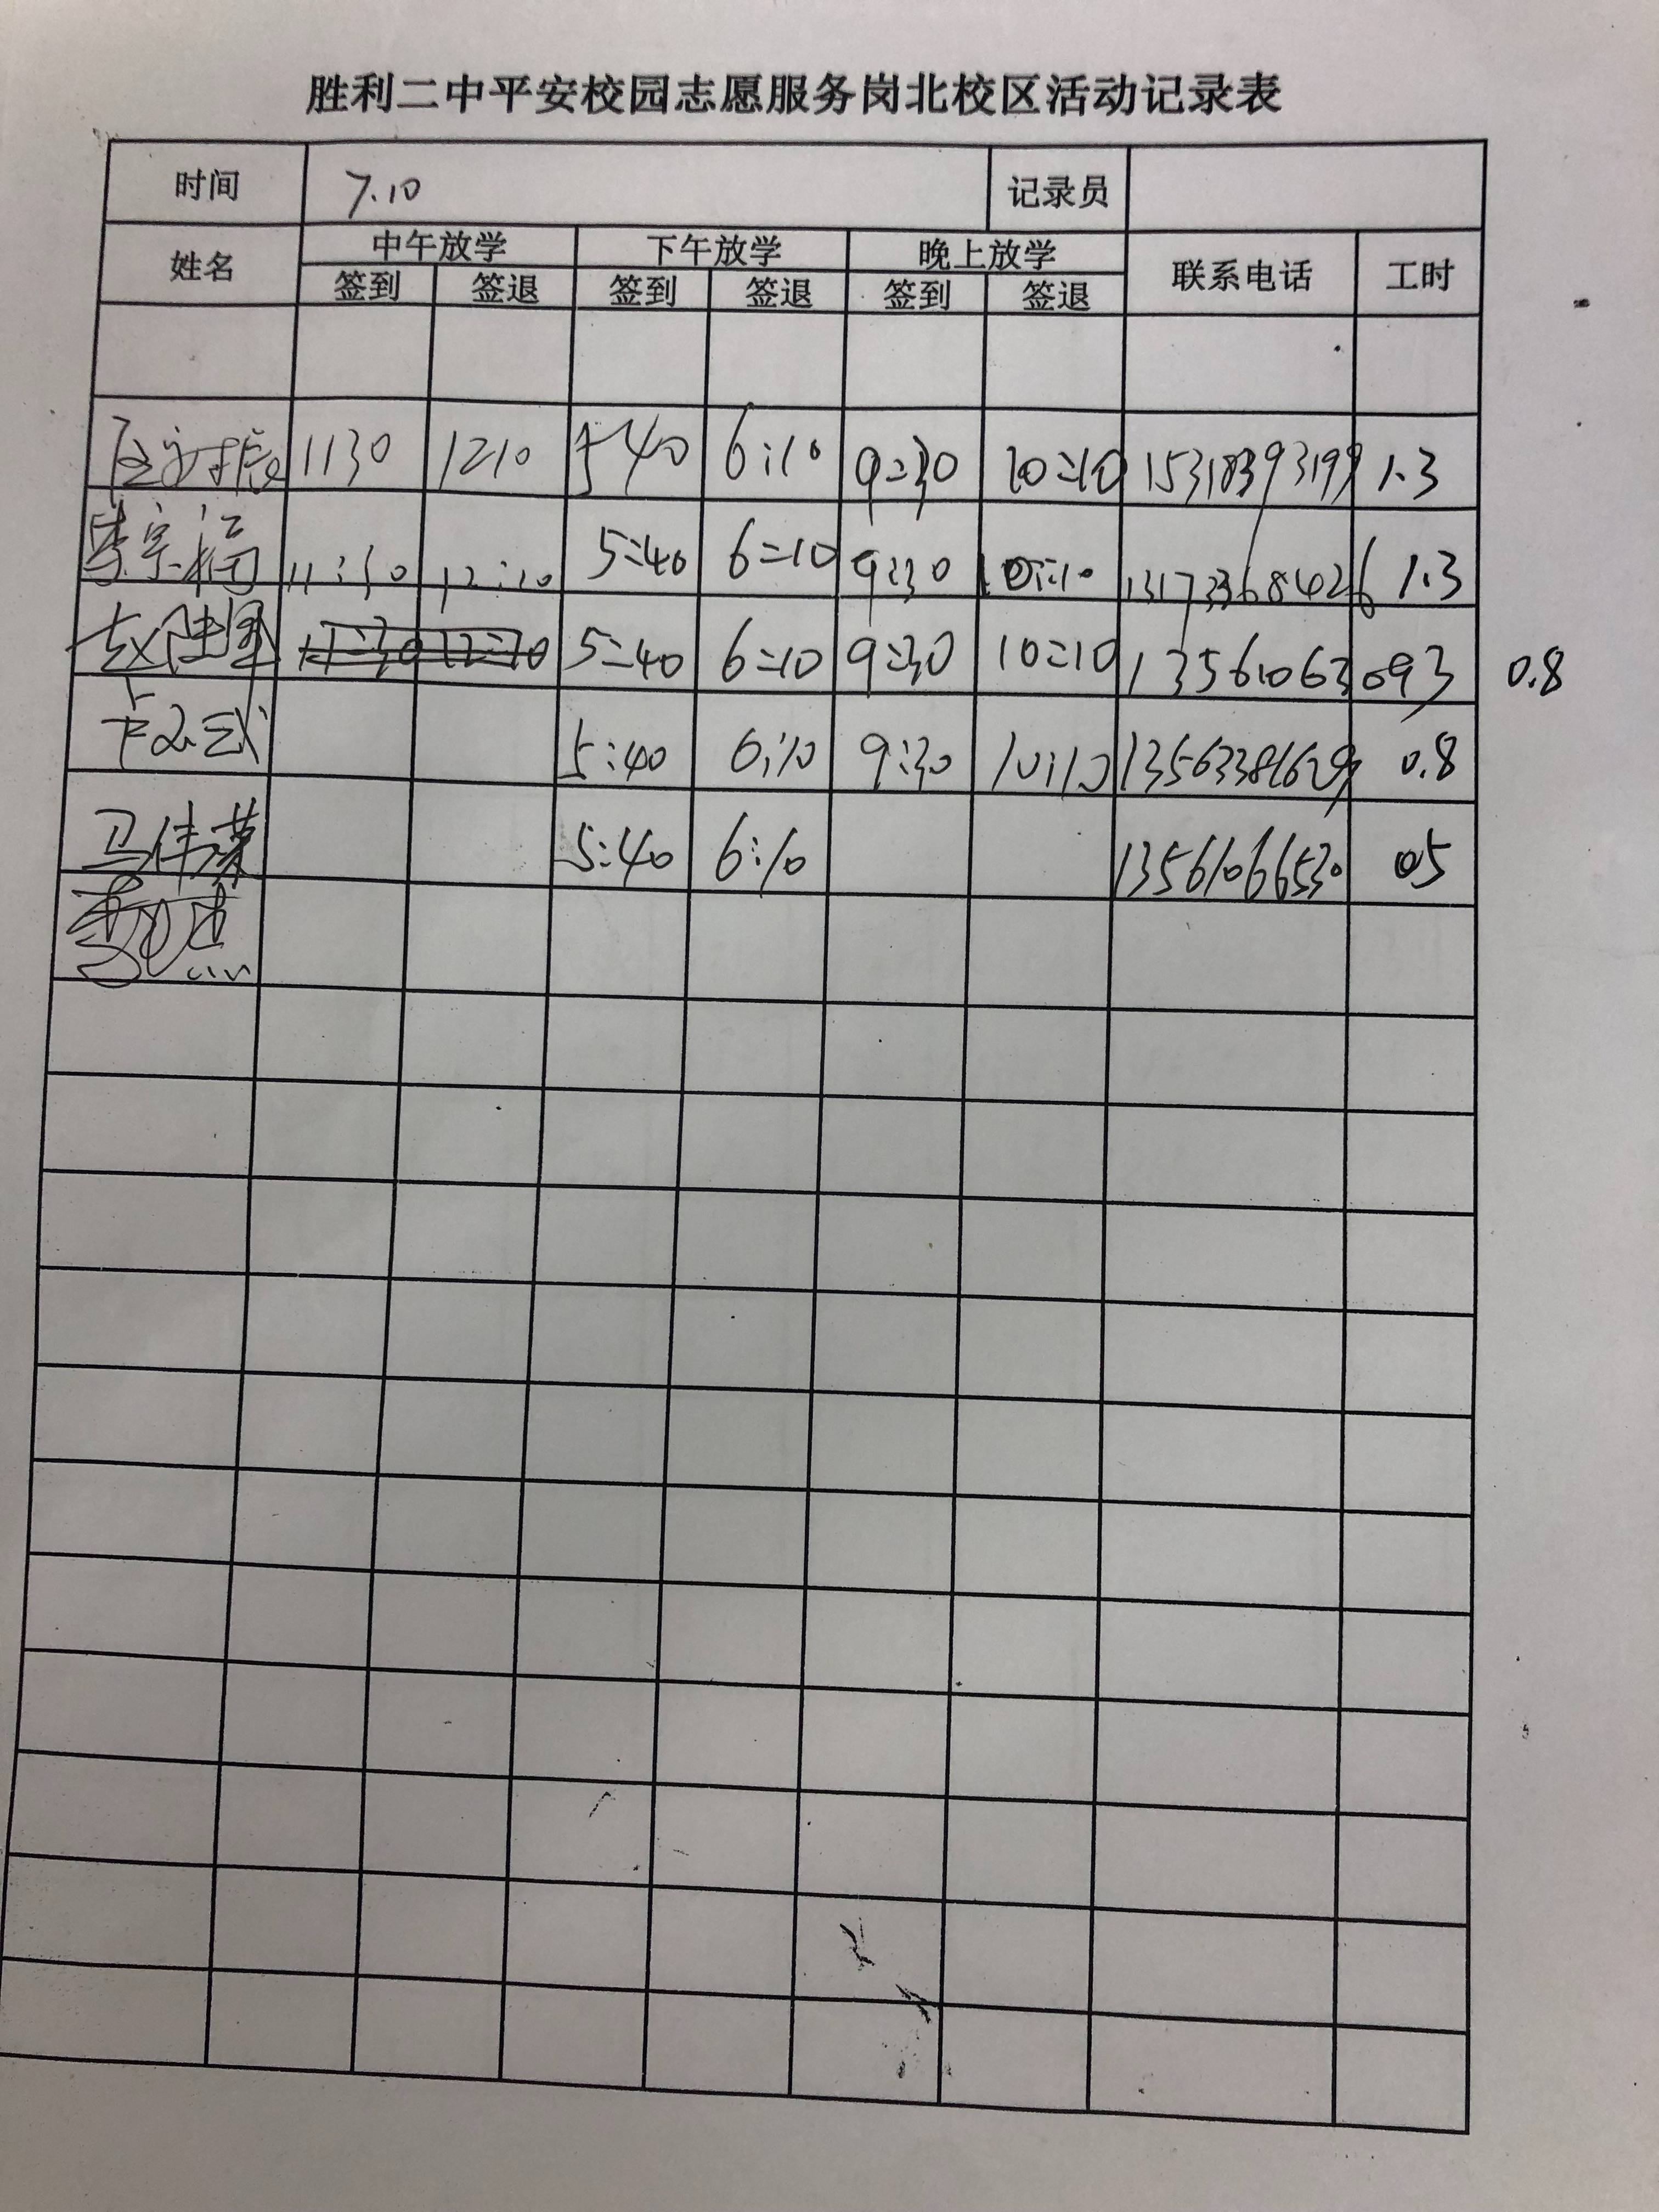 胜利二中平安校园志愿服务岗北校区活动记录表
时间 7.10 记录员
姓名 中午放学 下午放学 晚上放学 联系电话 工时
签到 签退 签到 签退 签到 签退
1130 1210 5 40 6:10 9:30 10:10 15318393199 1.3
李宗福 11:30 12:10 5:40 6=10 9:30 10:10 13173368426 1.3
5=40 6=10 9:30 10=10 13561063093 0.8
5:40 6:10 9:30 10:10 0.8
马伟 5:40 6:10 13561066530 05